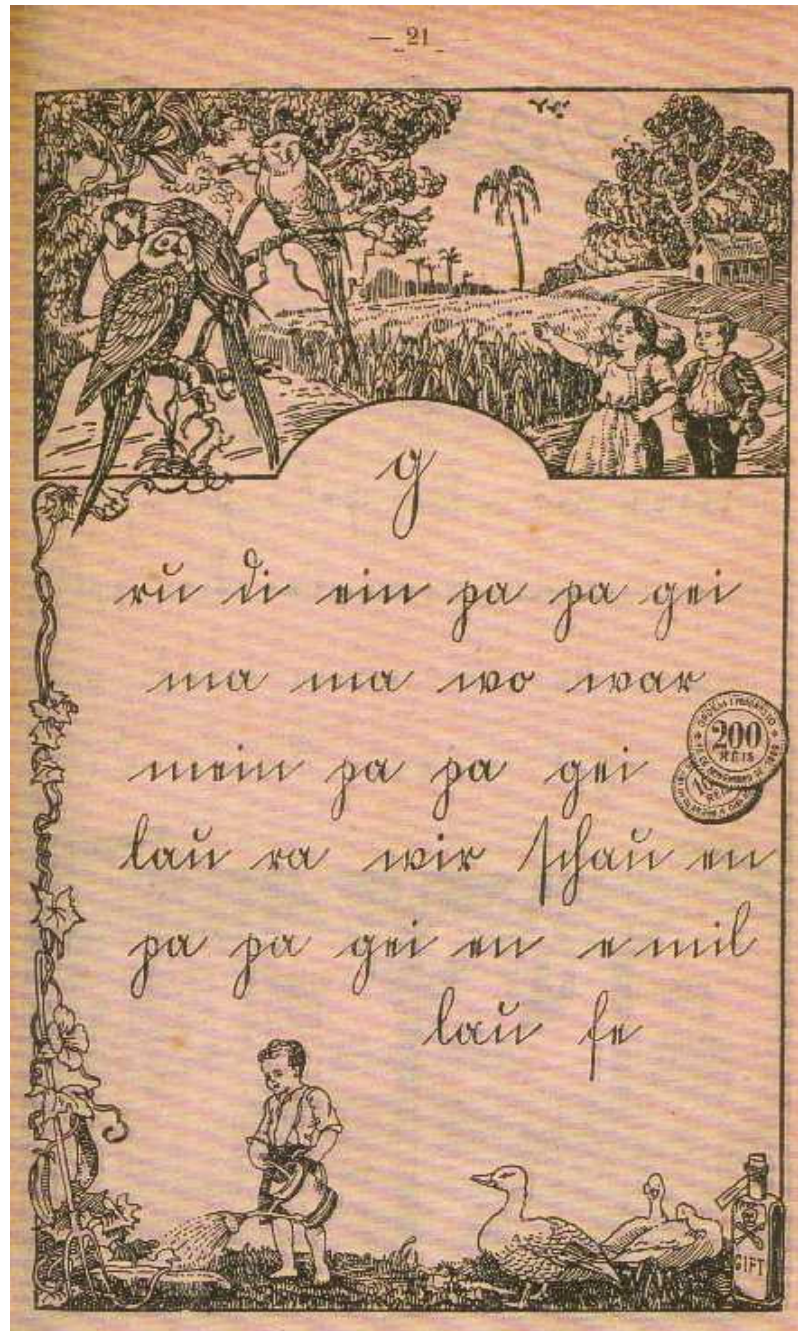 — 21 —
g
ru di ein pa pa gei
ma ma wo war
mein pa pa gei
200
REIS
lau ra wir schau en
pa pa gei en e mil
lau fe
GIFT